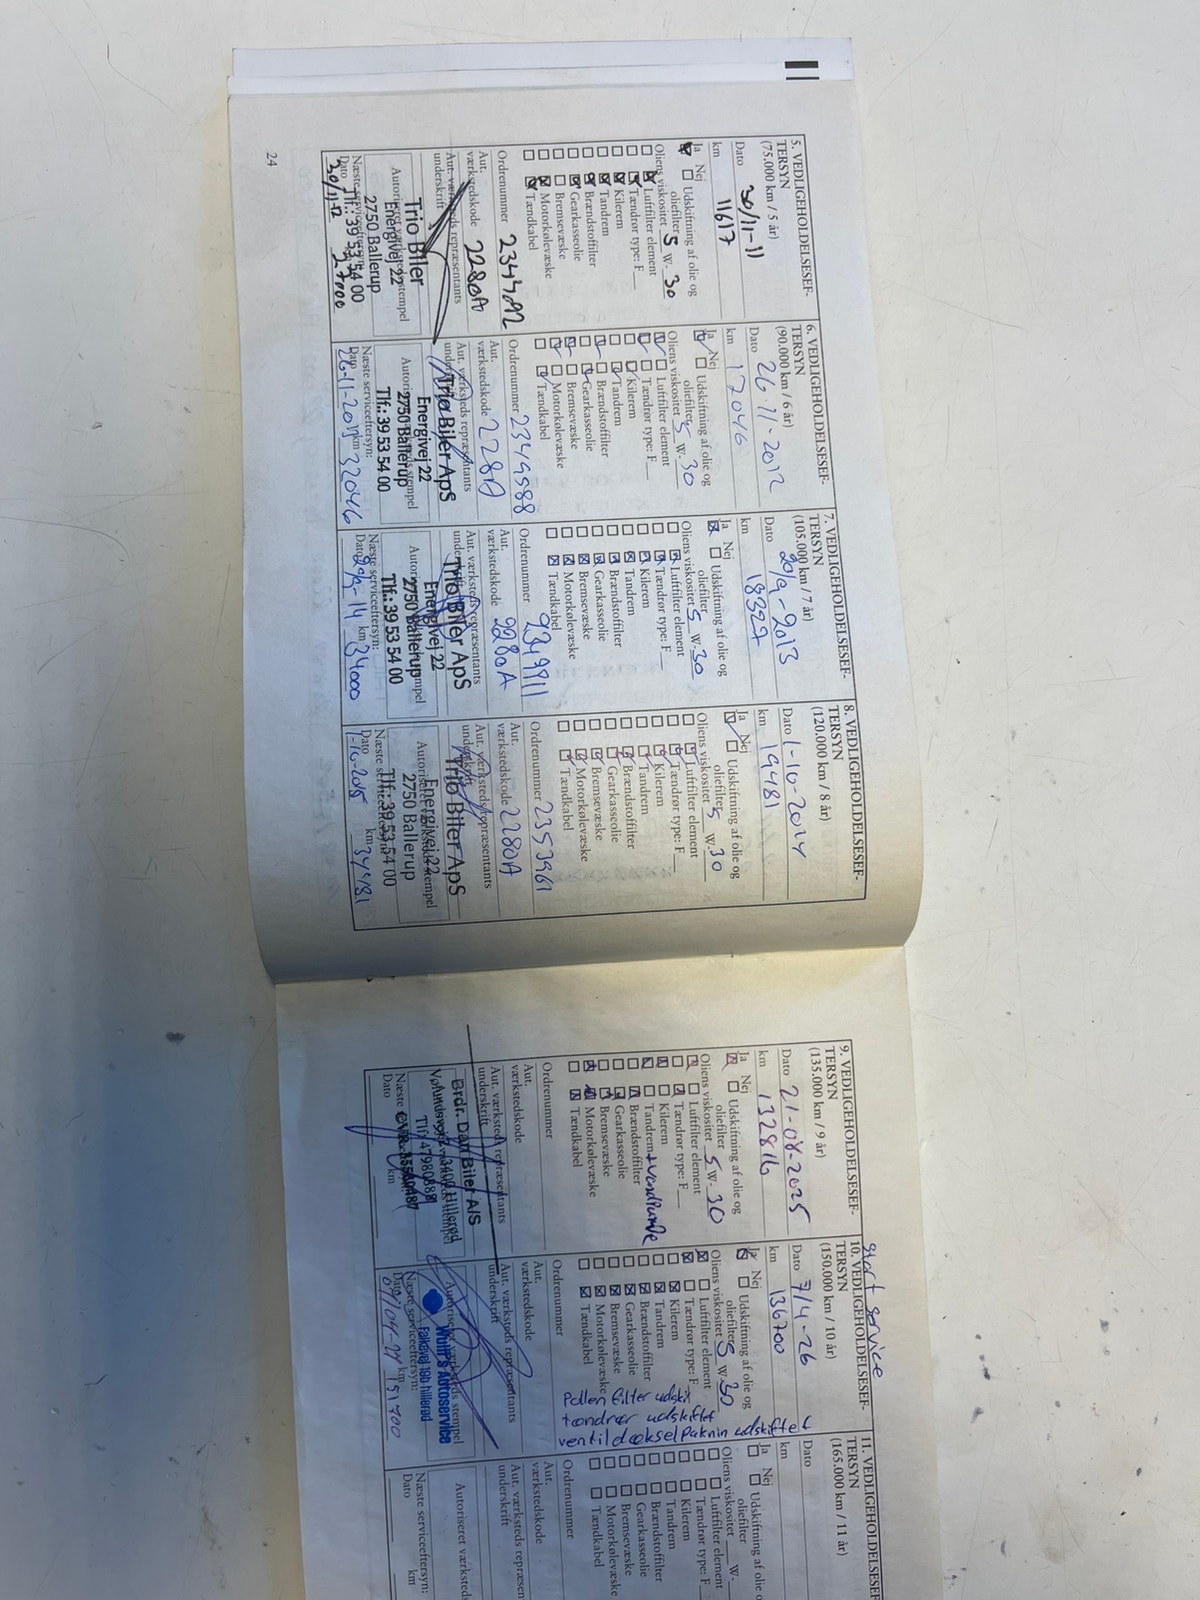 5. VEDLIGEHOLDELSESEF-
TERSYN
(75.000 km / 5 år)
Dato 30/11-11
km 11617
Ja Nej
Udskiftning af olie og
oliefilter
Oliens viskositet 5 W- 30
Luftfilter element
Tændrør type: F
Kilerem
Tandrem
Brændstoffilter
Gearkasseolie
Bremsevæske
Motorkølevæske
Tændkabel
Ordrenummer
Aut.
værkstedskode 2280A
Aut. værksteds repræsentants
underskrift
Trio Biler
Energivej 22
2750 Ballerup
Tlf.: 39 53 54 00
Næste serviceeftersyn:
Dato 30/11-12
24
6. VEDLIGEHOLDELSESEF-
TERSYN
(90.000 km / 6 år)
Dato 26-11-2012
km 17046
Ja Nej
Udskiftning af olie og
oliefilter
Oliens viskositet 5 W- 30
Luftfilter element
Tændrør type: F
Kilerem
Tandrem
Brændstoffilter
Gearkasseolie
Bremsevæske
Motorkølevæske
Tændkabel
Ordrenummer 2349588
Aut.
værkstedskode 2280A
Aut. værksteds repræsentants
underskrift
Trio Biler ApS
Energivej 22
2750 Ballerup
Tlf.: 39 53 54 00
Næste serviceeftersyn:
Dato 26-11-2013 km 32046
7. VEDLIGEHOLDELSESEF-
TERSYN
(105.000 km / 7 år)
Dato 20/9-2013
km 18327
Ja Nej
Udskiftning af olie og
oliefilter
Oliens viskositet 5 W- 30
Luftfilter element
Tændrør type: F
Kilerem
Tandrem
Brændstoffilter
Gearkasseolie
Bremsevæske
Motorkølevæske
Tændkabel
Ordrenummer
Aut.
værkstedskode 2280A
Aut. værksteds repræsentants
underskrift
Trio Biler ApS
Energivej 22
2750 Ballerup
Tlf.: 39 53 54 00
Næste serviceeftersyn:
Dato 20/9-14 km 34000
8. VEDLIGEHOLDELSESEF-
TERSYN
(120.000 km / 8 år)
Dato 1-10-2014
km 19481
Ja Nej
Udskiftning af olie og
oliefilter
Oliens viskositet 5 W- 30
Luftfilter element
Tændrør type: F
Kilerem
Tandrem
Brændstoffilter
Gearkasseolie
Bremsevæske
Motorkølevæske
Tændkabel
Ordrenummer 2353961
Aut.
værkstedskode 2280A
Aut. værksteds repræsentants
underskrift
Trio Biler ApS
Energivej 22
2750 Ballerup
Tlf.: 39 53 54 00
Næste serviceeftersyn:
Dato 1-10-2015 km 34481
9. VEDLIGEHOLDELSESEF-
TERSYN
(135.000 km / 9 år)
Dato 21-08-2025
km 132816
Ja Nej
Udskiftning af olie og
oliefilter
Oliens viskositet 5 W- 30
Luftfilter element
Tændrør type: F
Kilerem
Tandrem + vandpumpe
Brændstoffilter
Gearkasseolie
Bremsevæske
Motorkølevæske
Tændkabel
Ordrenummer
Aut.
værkstedskode
Aut. værksteds repræsentants
underskrift
Brdr. Dan Biler A/S
3400 Hillerød
Næste
Dato km
stort service
10. VEDLIGEHOLDELSESEF-
TERSYN
(150.000 km / 10 år)
Dato 7/4-26
km 136700
Ja Nej
Udskiftning af olie og
oliefilter
Oliens viskositet 5 W- 30
Luftfilter element
Tændrør type: F
Kilerem
Tandrem
Brændstoffilter
Gearkasseolie
Bremsevæske
Motorkølevæske
Tændkabel
pollen filter udskift
tændrør udskiftet
ventildæksel paknin udskiftet
Ordrenummer
Aut.
værkstedskode
Aut. værksteds repræsentants
underskrift
Autoriseret værksteds stempel
Wulff's Autoservice
hillerød
Næste serviceeftersyn:
Dato 07/04-27 km 151700
11. VEDLIGEHOLDELSESEF
TERSYN
(165.000 km / 11 år)
Dato
km
Ja Nej
Udskiftning af olie o
oliefilter
Oliens viskositet W-
Luftfilter element
Tændrør type: F
Kilerem
Tandrem
Brændstoffilter
Gearkasseolie
Bremsevæske
Motorkølevæske
Tændkabel
Ordrenummer
Aut.
værkstedskode
Aut. værksteds repræsen
underskrift
Autoriseret værksted
Næste serviceeftersyn:
Dato km